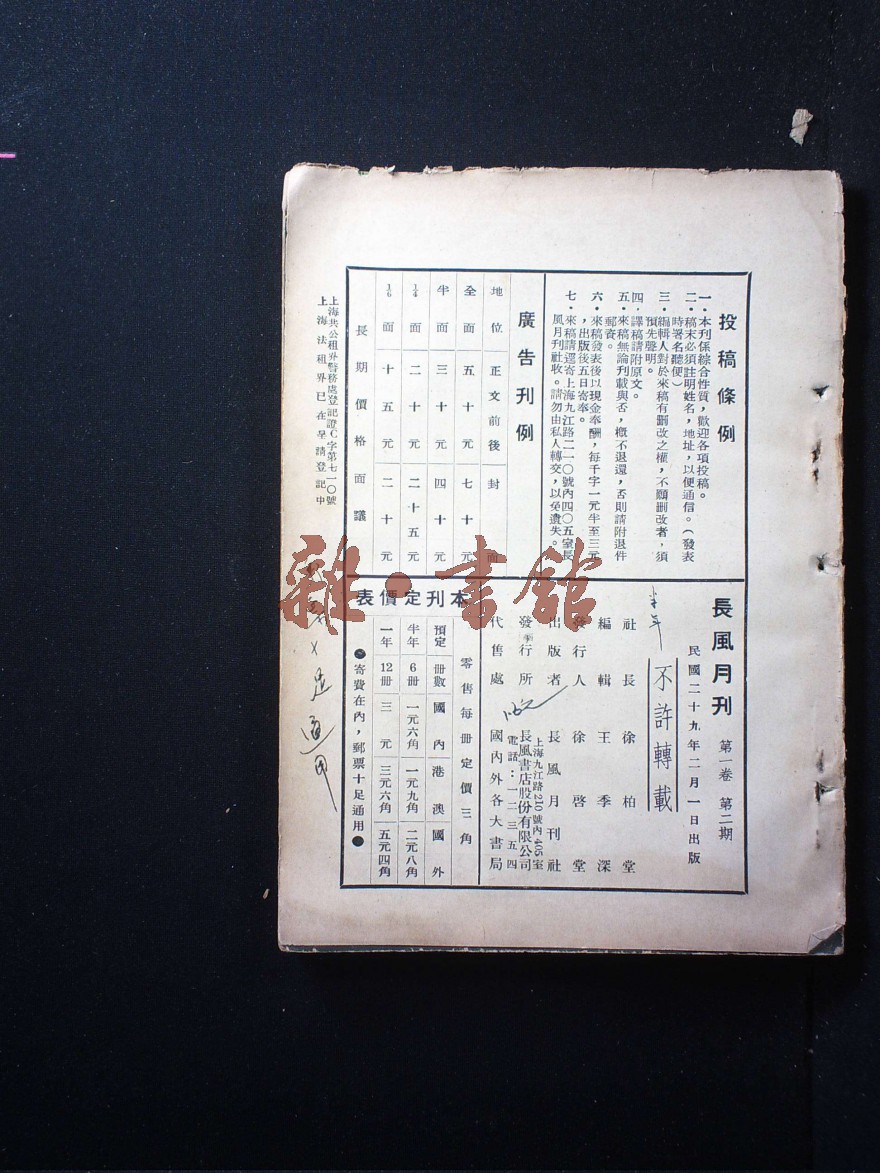 投稿條例
一・本刊係綜合性質，歡迎各項投稿。
二・稿末必須註明姓名，地址，以便通信。（發表
時署名聽便）
三・編輯人對於來稿有删改之權，不願删改者，須
預先聲明。
四・譯稿請附原文。
五・來稿無論刊載與否，概不退還，否則請附退件
郵資。
六・來稿發表後以現金奉酬，每千字一元半至三元
，出版後五日寄奉。
七・來稿請逕寄上海九江路二一〇號內四〇五室長
風月刊社收。請勿由私人轉交，以免遺失。
廣告刊例
地位 正文前後 封面
全面 五十元 七十元
半面 三十元 四十元
1/4面 二十元 二十五元
1/6面 十五元 二十元
長期價格面議
上海公共租界警務處登記證C字第七一〇號
上海法租界已在呈請登記中
長風月刊 第一卷 第二期
民國二十九年二月一日出版
不許轉載
半年
社長 徐柏堂
編輯 王季深
發行人 徐啓堂
出版者 長風月刊社
上海九江路210號內405室
發行所 長風書店股份有限公司
電話：一二三五四
代售處 國內外各大書局
本刊定價表
零售每册定價三角
預定 册數 國內 港澳 國外
半年 6册 一元六角 一元九角 二元八角
一年 12册 三元 三元六角 五元四角
●寄費在內，郵票十足通用●
雜・書館